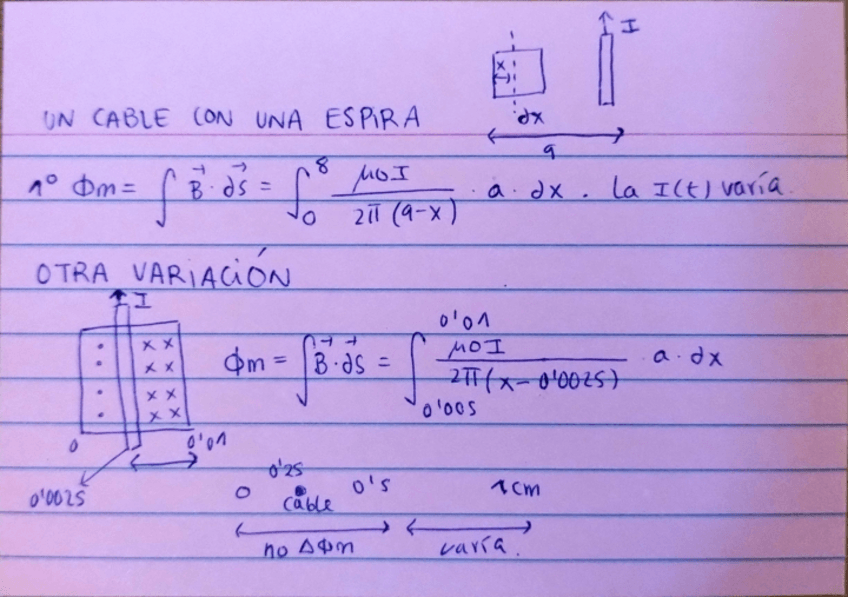 I
x
dx
9
UN CABLE CON UNA ESPIRA
1º Φm = ∫ B⃗ · dS⃗ = ∫₀⁸ μ0I / 2π (9-x) · a · dx . la I(t) varía.
OTRA VARIACIÓN
I
· x x
· x x
· x x
· x x
0 0'01
0'0025
Φm = ∫ B⃗ · dS⃗ = ∫ 0'005 0'01 μ0I / 2π (x - 0'0025) a · dx
0 0'25 cable 0's 1cm
no ΔΦm varía.